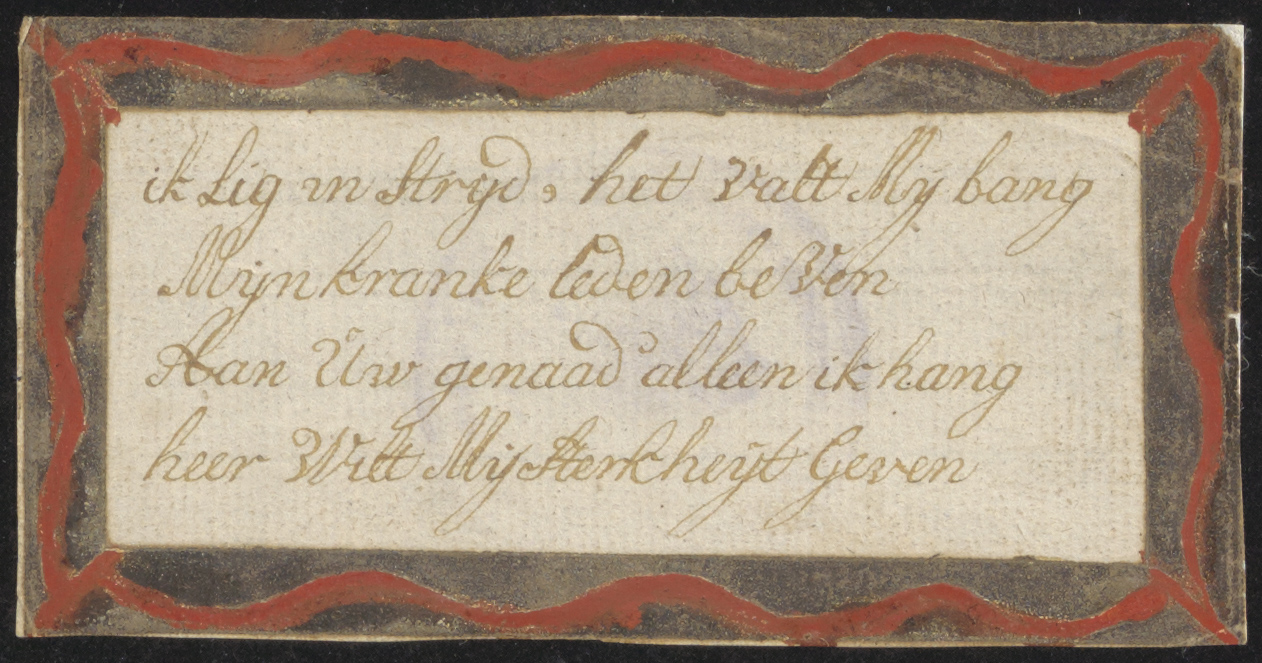 ik Lig in Stryd, het Valt Mij bang
Mijn kranke leden beVen
Aan Uw genaad' alleen ik hang
heer Wilt Mij Sterkheijt Geven